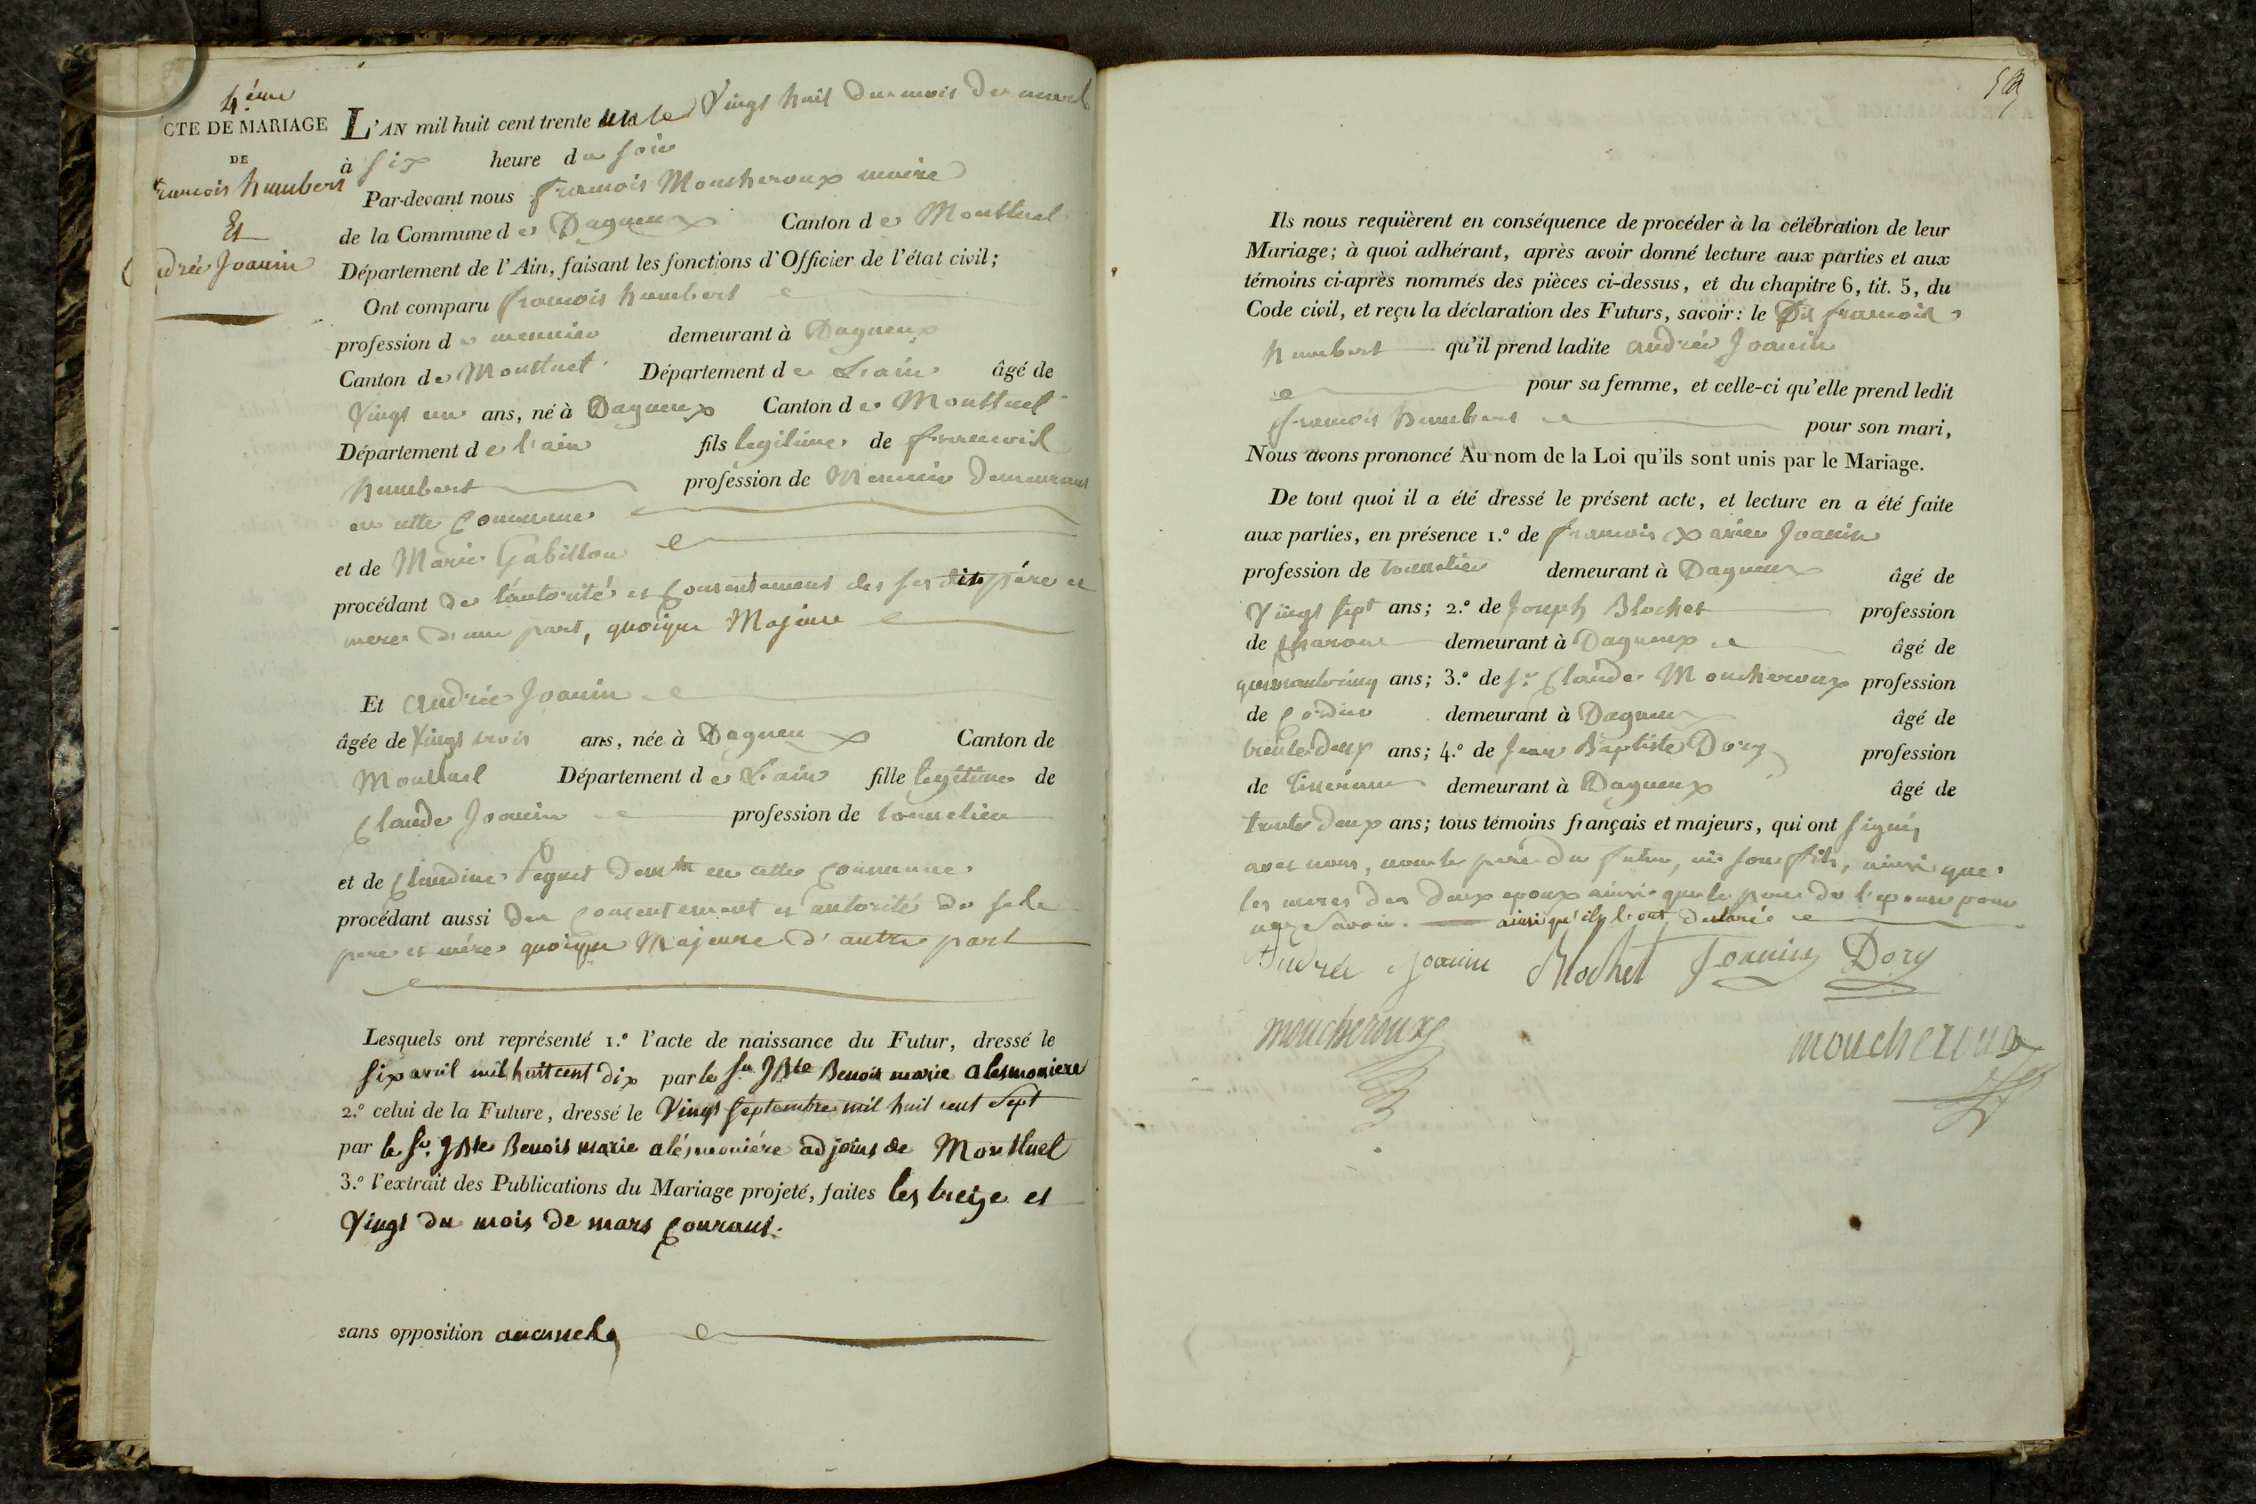 4.ème
CTE DE MARIAGE
DE
françois humbert
Et
andrée Joanin
L'AN mil huit cent trente un le Vingt huit du mois de mars
à six heure du soir
Par-devant nous françois Moucheroux maire
de la Commune de Dagneux Canton de Montluel
Département de l'Ain, faisant les fonctions d'Officier de l'état civil;
Ont comparu françois humbert
profession de meunier demeurant à Dagneux
Canton de Montluel Département de L'ain âgé de
Vingt un ans, né à Dagneux Canton de Montluel
Département de l'ain fils legitime de francois
humbert profession de Meunier demeurant
en cette Commune
et de Marie Gabillon
procédant de l'autorité et Consentement des ses dits père et
mere d'une part, quoique Majeur
Et andrée Joanin
âgée de Vingt trois ans, née à Dagneux Canton de
Montluel Département de L'ain fille legitime de
Claude Joanin profession de tonnelier
et de Claudine Peguet demte en cette Commune
procédant aussi du Consentement et autorité de
pere et mére quoique Majeure d'autre part
Lesquels ont représenté 1.º l'acte de naissance du Futur, dressé le
six avril mil huit cent dix par le sr JBte Benoit marie alesmoniere
2.º celui de la Future, dressé le Vingt septembre mil huit cent sept
par le sr. JBte Benoit marie alésmoniére adjoint de Montluel
3.º l'extrait des Publications du Mariage projeté, faites les treize et
Vingt du mois de mars Courant.
sans opposition aucune
59
Ils nous requièrent en conséquence de procéder à la célébration de leur
Mariage; à quoi adhérant, après avoir donné lecture aux parties et aux
témoins ci-après nommés des pièces ci-dessus, et du chapitre 6, tit. 5, du
Code civil, et reçu la déclaration des Futurs, savoir: le Dit francois
humbert qu'il prend ladite andrée Joanin
pour sa femme, et celle-ci qu'elle prend ledit
francois humbert pour son mari,
Nous avons prononcé Au nom de la Loi qu'ils sont unis par le Mariage.
De tout quoi il a été dressé le présent acte, et lecture en a été faite
aux parties, en présence 1.º de francois Xavier Joanin
profession de tonnelier demeurant à Dagneux âgé de
Vingt sept ans; 2.º de Joseph Blochet profession
de Charon demeurant à Dagneux âgé de
quarante cinq ans; 3.º de sr Claude Moucheroux profession
de Cordier demeurant à Dagneux âgé de
trente deux ans; 4.º de Jean Baptiste Dory profession
de tisserant demeurant à Dagneux âgé de
trente deux ans; tous témoins français et majeurs, qui ont signé,
avec nous, non le pere du futur, ni son fils, ainsi que
les meres des deux epoux ainsi que le pere de l'epouse pour
ne savoir. ainsi qu'ils l'ont déclaré
Andrée Joanin Blochet Joanin Dory
moucheroux
moucheroux